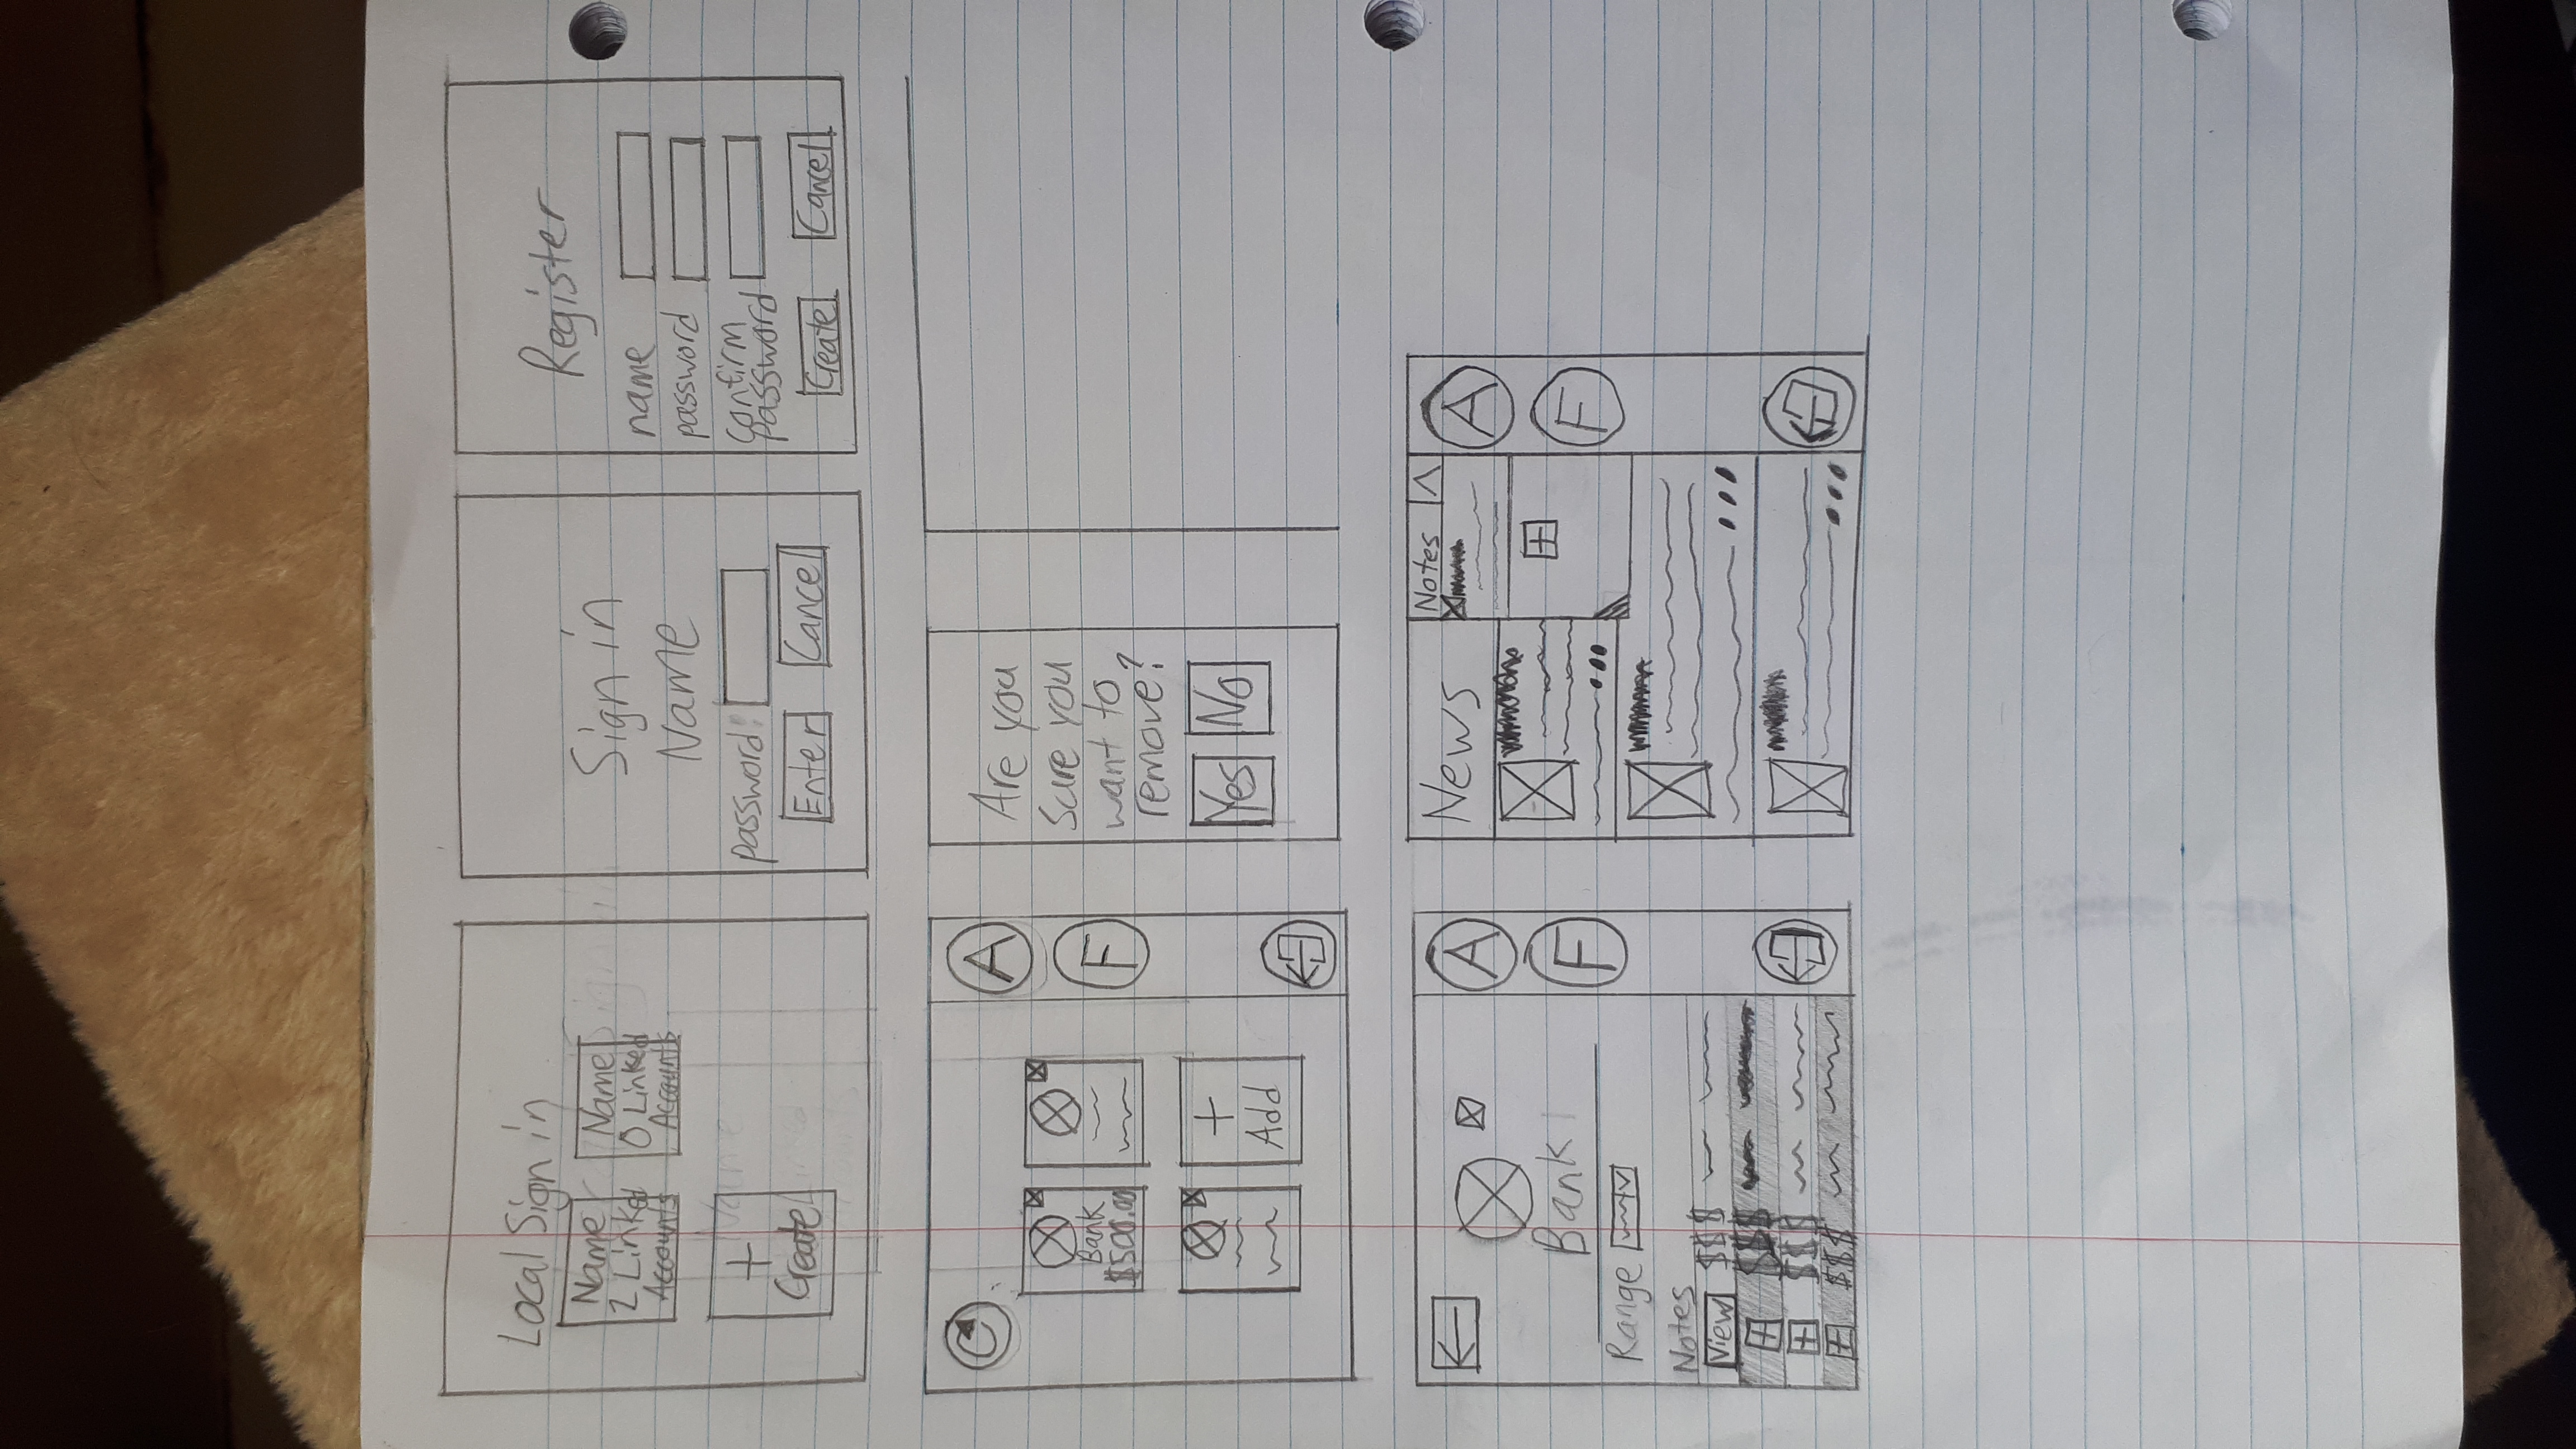 Local Sign in
Name
2 Linked
Accounts
Name
0 Linked
Accounts
+
Create
Sign in
Name
password:
Enter
Cancel
Register
name
password
confirm
password
Create
Cancel
Bank
$500.00
+
Add
A
F
Are you
sure you
want to
remove?
Yes
No
Bank
Range
Notes
View $$$
+ $$$
+ $$$
+ $$$
A
F
News
Notes
+
A
F